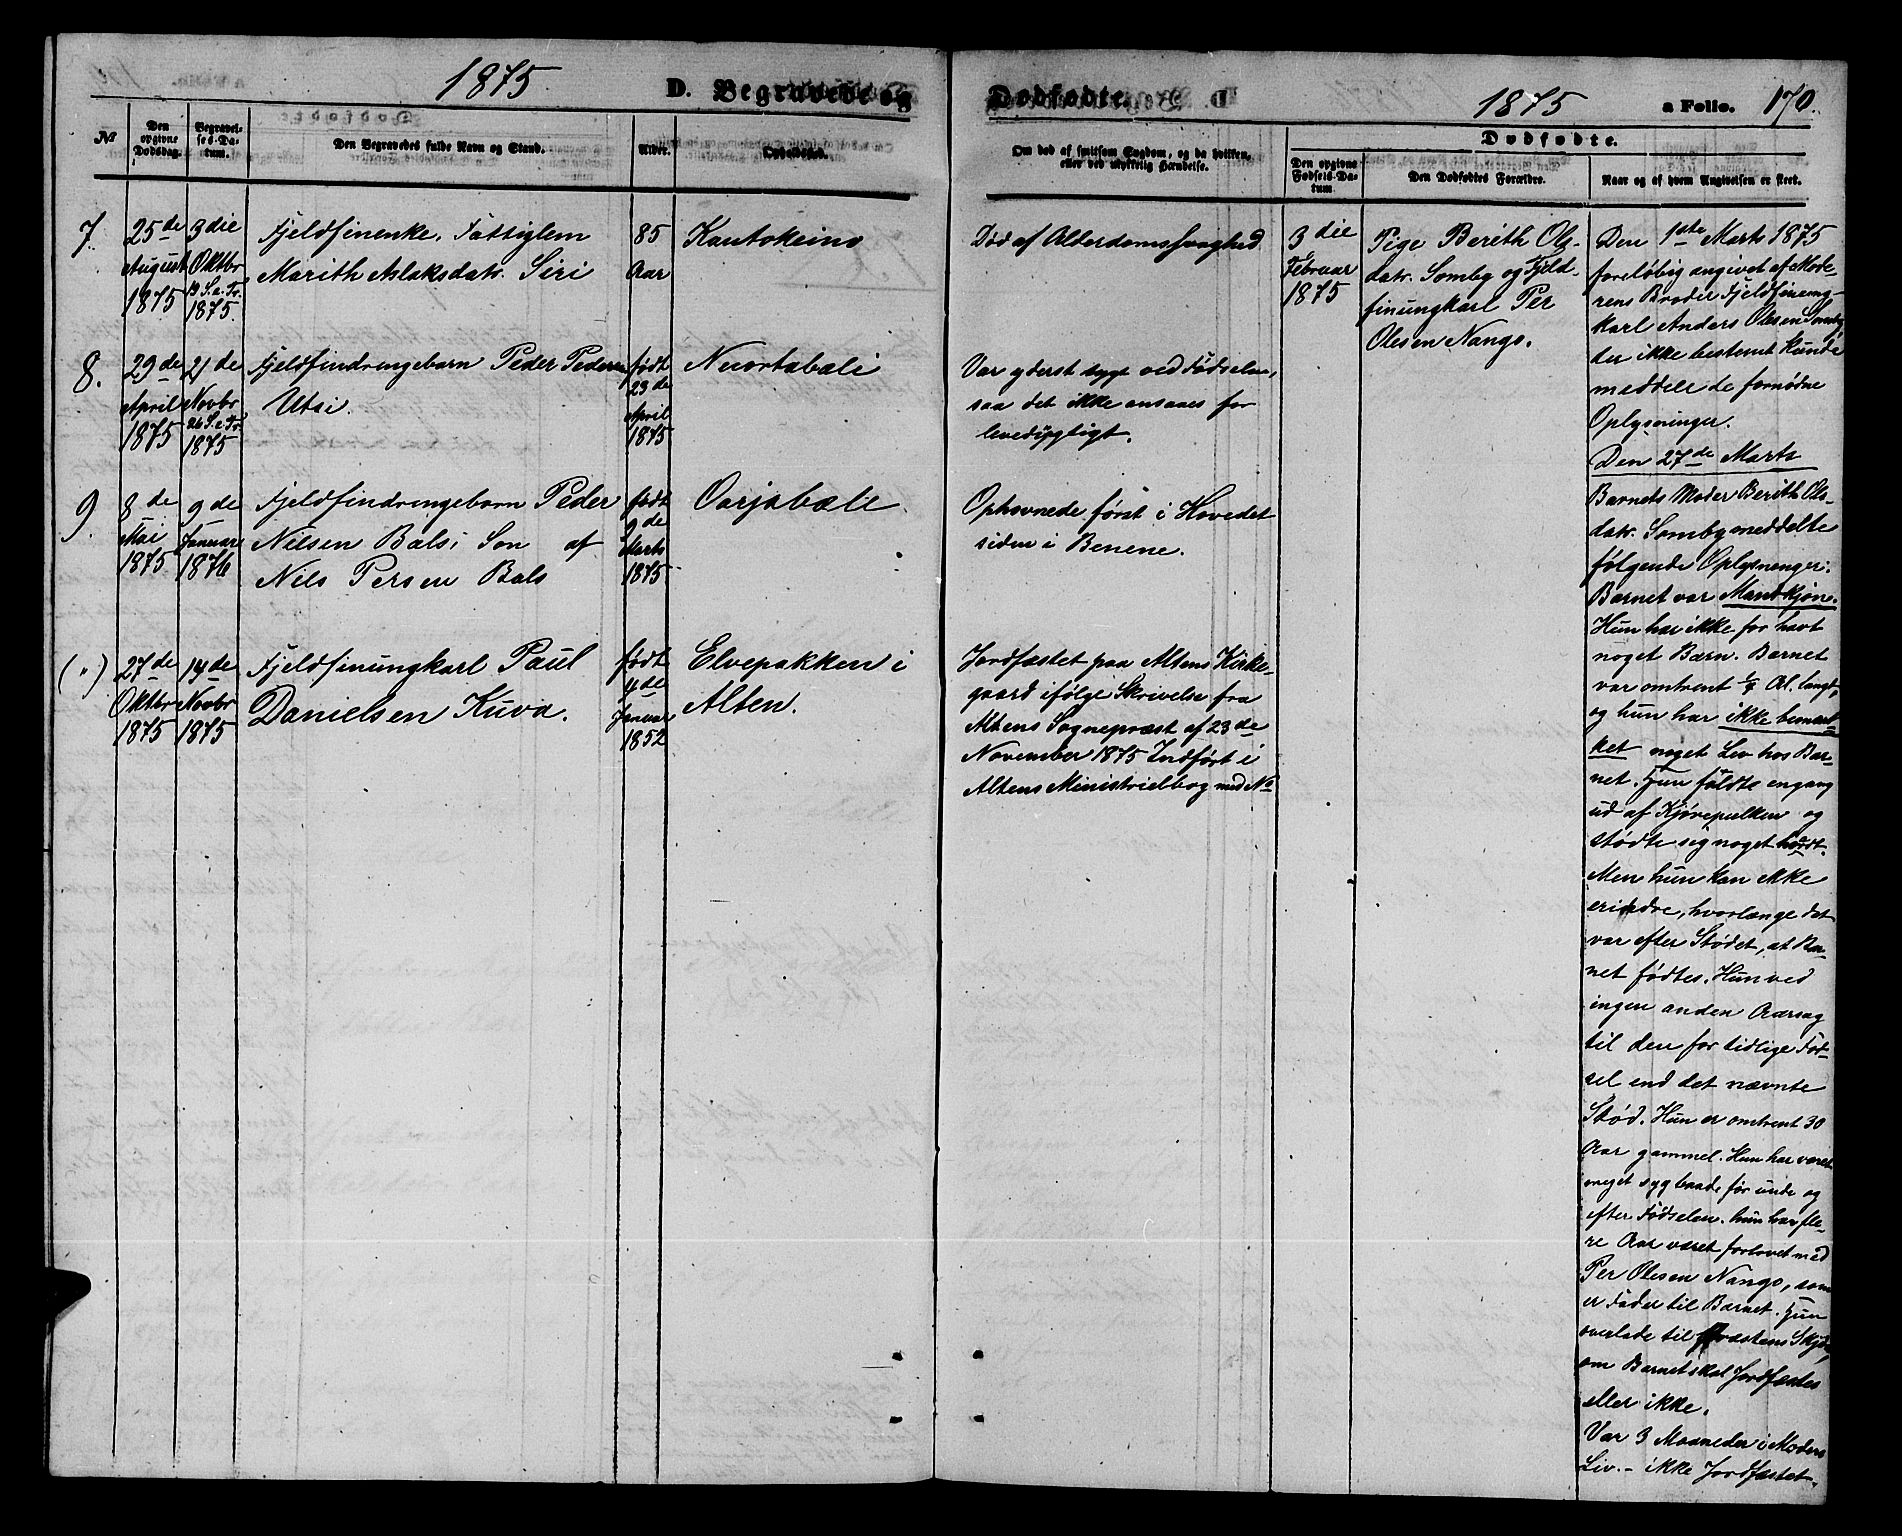 1875. D. Begravede og
Dødfødte. 1875 a Folio. 170.
№ Den opgivne Dødsdag. Begravelses-Datum. Den Begravedes fulde Navn og Stand. Alder. Opholdssted.
Om død af smitsom Sygdom, og da hvilken, eller ved ulykkelig Hændelse.
Dødfødte.
Den opgivne Fødsels-Datum Den Dødfødtes Forældre. Naar og af hvem Angivelsen er skeet.
7.
25de
August
1875
3die
Oktbr
19 S. e. Tr.
1875.
Fjeldfinenke. Fattiglem
Marith Aslaksdatr. Siri
85
Aar
Kautokeino
Død af Alderdomssvaghed
8.
29de
April
1875
21de
Novbr
26 S. e. Tr.
1875
Fjeldfindrengebarn Peder Pedersen
Utsi.
født
23de
April
1875
Nuortabæli
Var yderst sygt ved Fødselen,
saa det ikke ansaaes for
levedygtigt.
9.
8de
Mai
1875
9de
Januar
1876
Fjeldfindrengebarn Peder
Nilsen Bals; Son af
Nils Persen Bals
født
9de
Marts
1875
Oarjabæli.
Ophovnede først i Hovedet
siden i Benene.
(")
27de
Oktbr
1875
14de
Novbr
1875
Fjeldfinungkarl Paul
Danielsen Kuva.
født
4de
Januar
1852
Elvepakken i
Alten.
Jordfæstet paa Altens Kirke-
gaard ifølge Skrivelse fra
Altens Sognepræst af 23de
November 1875 Indført i
Altens Ministrielbog med No
3die
Februar
1875
Pige Berith Ols-
datr. Somby og Fjeld-
finungkarl Per
Olesen Nango.
Den 1ste Marts 1875
foreløbig angivet af Mode-
rens Broder Fjeldfinung-
karl Anders Olsen Somby
der ikke bestemt kunde
meddele de fornødne
Oplysninger.
Den 27de Marts
Barnets Moder Berith Ols-
datr. Somby meddelte
følgende Oplysninger:
Barnet var Mandkjøn.
Hun har ikke før havt
noget Barn. Barnet
var omtrent ¼ Al. langt,
og hun har ikke bemær-
ket noget Liv hos Bar-
net. Hun faldte engang
ud af Kjørepulken og
stødte sig noget haardt.
Men hun kan ikke
erindre, hvorlænge det
var efter Stødet, at Bar-
net fødtes. Hun ved
ingen anden Aarsag
til den for tidlige Fød-
sel end det nævnte
Stød. Hun er omtrent 30
Aar gammel. Hun har været
meget syg baade før unde og
efter Fødselen. hun har fle-
re Aar været forlovet med
Per Olesen Nango, som
er Fader til Barnet. Hun
overlade til Præstens Skjøn,
om Barnet skal Jordfæstes
eller ikke.
Var 3 Maaneder i Moders
Liv. - ikke Jordfæstet.